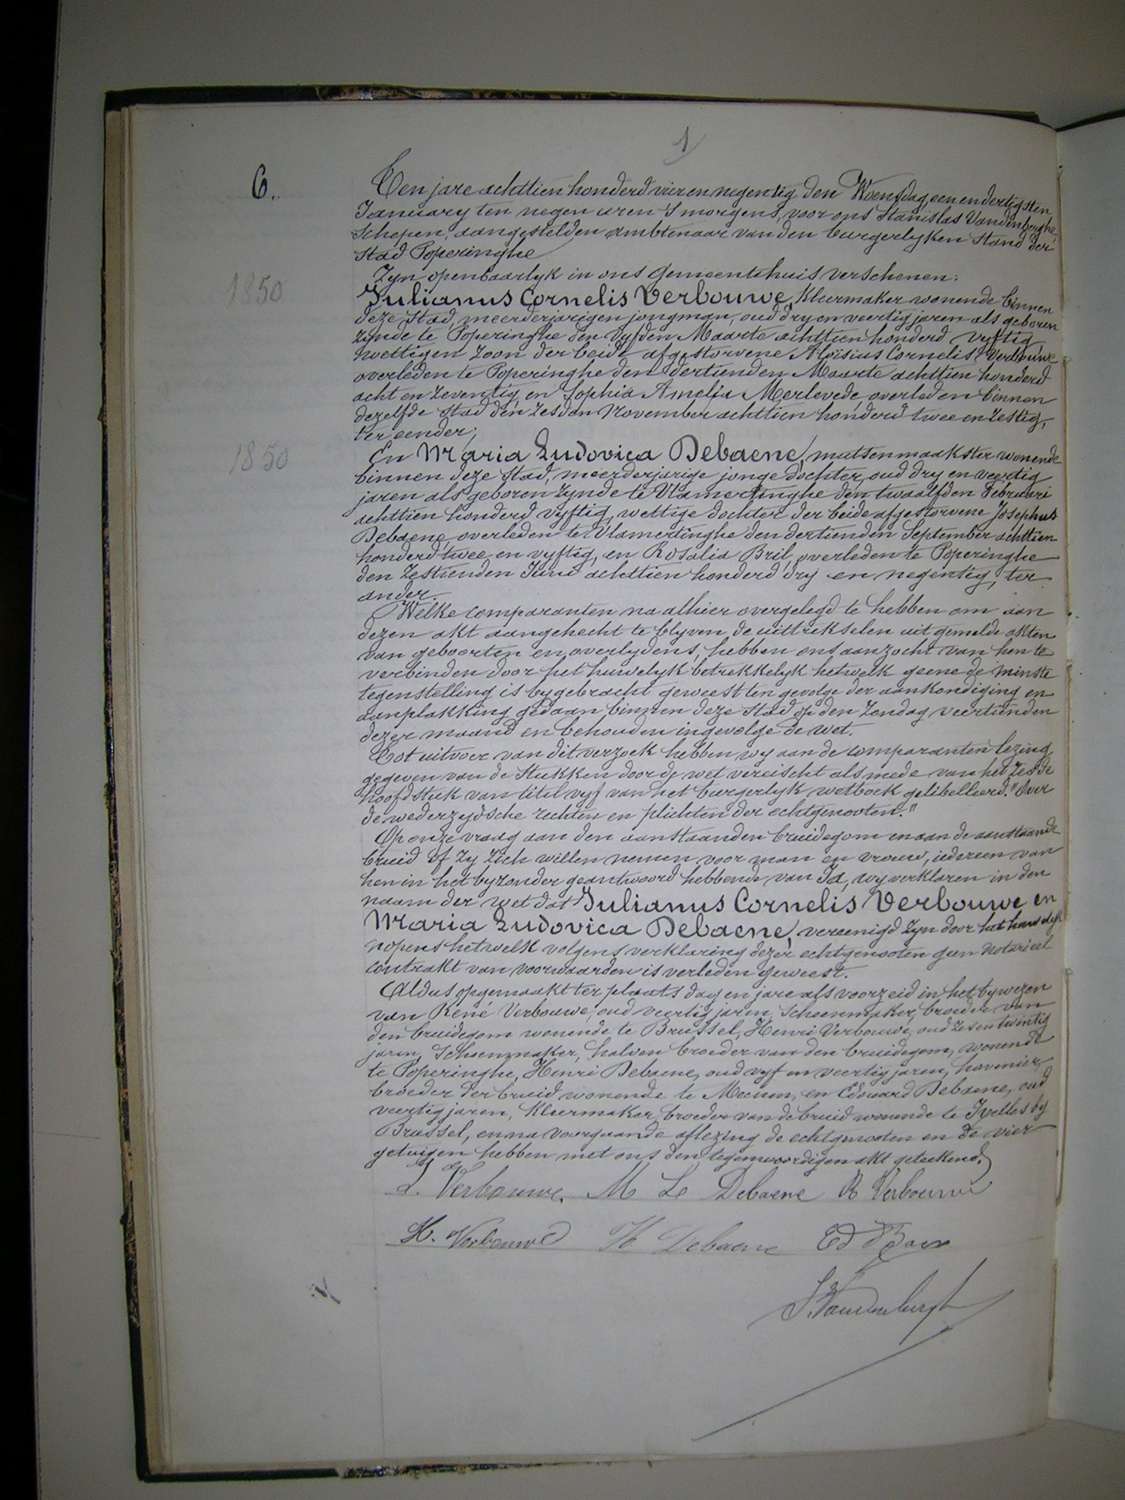 1
6.
Ten jare achttien honderd vier en negentig den Woensdag een en dertigsten
January ten negen uren 's morgens, voor ons Stanislas Vandenberghe,
Schepen, aangestelden ambtenaar van den burgerlyken Stand der
Stad Poperinghe
Zyn openbaarlyk in ons Gemeentehuis verschenen:
1850
Julianus Cornelis Verbouwe, Kleermaker wonende binnen
deze Stad, meerderjarigen jongman, oud dry en veertig jaren als geboren
zynde te Poperinghe den vyfden Maarte achttien honderd vyftig,
wettigen zoon der beide afgestorvene Aloisius Cornelis Verbouwe
overleden te Poperinghe den dertienden Maarte achttien honderd
acht en zeventig, en Sophia Amelia Merlevede, overleden binnen
dezelfde Stad den zesden November achttien honderd twee en zestig,
ter eender;
1850
En Maria Ludovica Debaene, mutsenmaakster wonende
binnen deze Stad, meerderjarige jonge dochter, oud dry en veertig
jaren als geboren zynde te Vlamertinghe den twaalfden Februari
achttien honderd vyftig, wettige dochter der beide afgestorvene Josephus
Debaene, overleden te Vlamertinghe den dertienden September achttien
honderd twee en vyftig, en Rosalia Bril, overleden te Poperinghe
den zestienden Juni achttien honderd dry en negentig, ter
ander.
Welke comparanten na alhier overgelegd te hebben om aan
dezen akt aangehecht te blyven, de uittrekselen uit gemelde akten
van geboorten en overlydens, hebben ons aanzocht van hen te
verbinden door het huwelyk betrekkelyk hetwelk geene de minste
tegenstelling is bygebracht geweest ten gevolge der aankondiging en
aanplakking gedaan binnen deze Stad op den Zondag veertienden
dezer maand en behouden ingevolge de wet.
Tot uitvoer van dit verzoek hebben wy aan de comparanten lezing
gegeven van de Stukken door de wet vereischt als mede van het Zesde
hoofdstuk van titel vyf van het burgerlyk wetboek gelibelleerd "Over
de wederzydsche rechten en plichten der echtgenooten."
Op onze vraag aan den aanstaanden bruidegom en aan de aanstaande
bruid of zy zich willen nemen voor man en vrouw, iedereen van
hen in het byzonder geantwoord hebbende van Ja, wy verklaren in den
naam der wet dat Julianus Cornelis Verbouwe en
Maria Ludovica Debaene, vereenigd zyn door het huwelyk
nopens hetwelk volgens verklaring dezer echtgenooten geen notarieel
contrakt van voorwaarden is verleden geweest.
Aldus opgemaakt ter plaats dag en jare als voorzeid in het bywezen
van René Verbouwe, oud veertig jaren, Schoenmaker, broeder van
den bruidegom wonende te Brussel, Henri Verbouwe, oud zes en twintig
jaren, Schoenmaker, halven broeder van den bruidegom, wonende
te Poperinghe, Henri Debaene, oud vyf en veertig jaren, hovenier,
broeder der bruid wonende te Meenen, en Edouard Debaene, oud
veertig jaren, Kleermaker, broeder van de bruid wonende te Ixelles by
Brussel, en na voorgaande aflezing de echtgenooten en de vier
getuigen hebben met ons den tegenwoordigen akt geteekend.
Verbouwe. M Lo Debaene R Verbouwe
H. Verbouwe H Debaene Ed
S. Vandenberghe